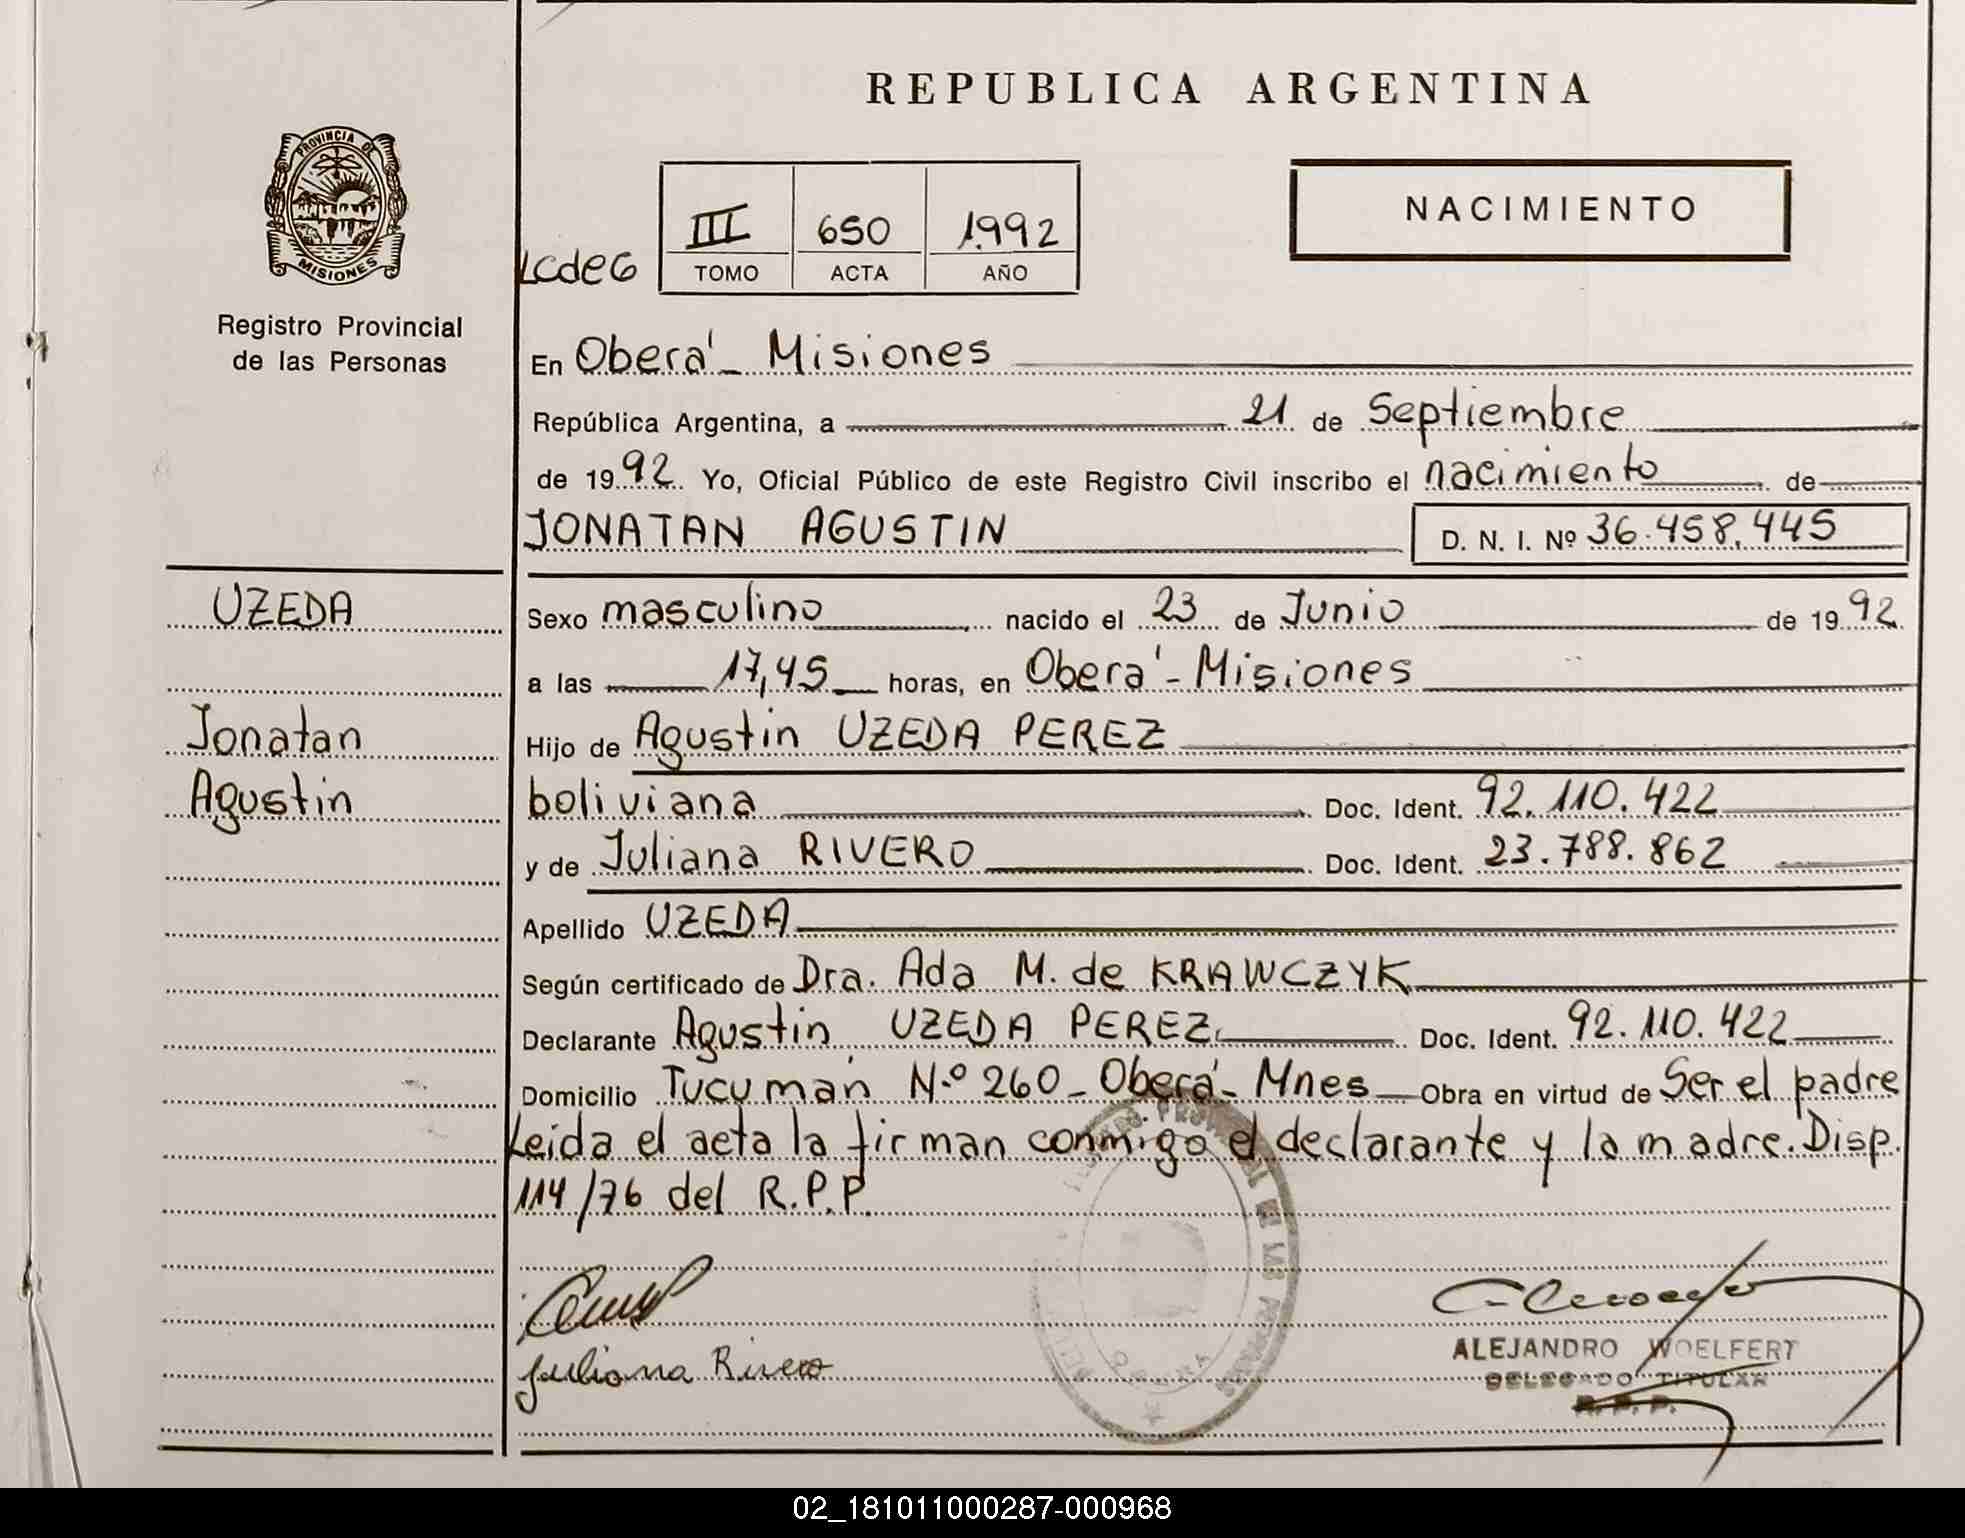 REPUBLICA ARGENTINA
PROVINCIA DE
MISIONES
Registro Provincial
de las Personas
LCdeG
III 650 1992
TOMO ACTA AÑO
NACIMIENTO
En Oberá - Misiones
República Argentina, a 21 de Septiembre
de 1992. Yo, Oficial Público de este Registro Civil inscribo el nacimiento de
JONATAN AGUSTIN D. N. I. Nº 36.458.445
UZEDA
Jonatan
Agustin
Sexo masculino nacido el 23 de Junio de 1992.
a las 17,45 horas, en Oberá - Misiones
Hijo de Agustin UZEDA PEREZ
boliviana Doc. Ident. 92.110.422
y de Juliana RIVERO Doc. Ident. 23.788.862
Apellido UZEDA
Según certificado de Dra. Ada M. de KRAWCZYK
Declarante Agustin UZEDA PEREZ Doc. Ident. 92.110.422
Domicilio Tucuman N.º 260 - Oberá - Mnes Obra en virtud de Ser el padre
Leida el acta la firman conmigo el declarante y la madre. Disp.
114/76 del R.P.P.
Juliana Rivero
OBERA
ALEJANDRO WOELFERT
DELEGADO TITULAR
R. P. P.
02_181011000287-000968